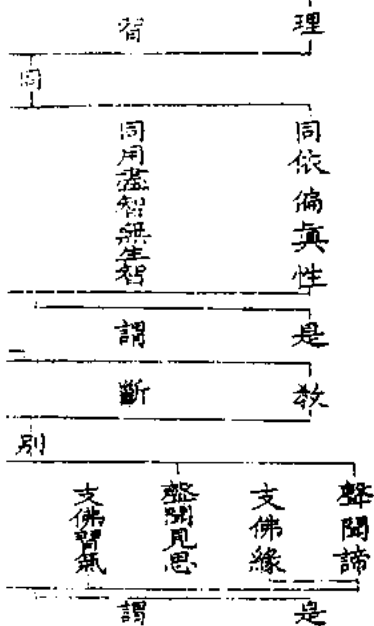 理
智
同
同依偏眞性
同用盡智無生智
是
謂
教
斷
別
聲聞諦
支佛緣
聲聞見思
支佛習氣
是
謂